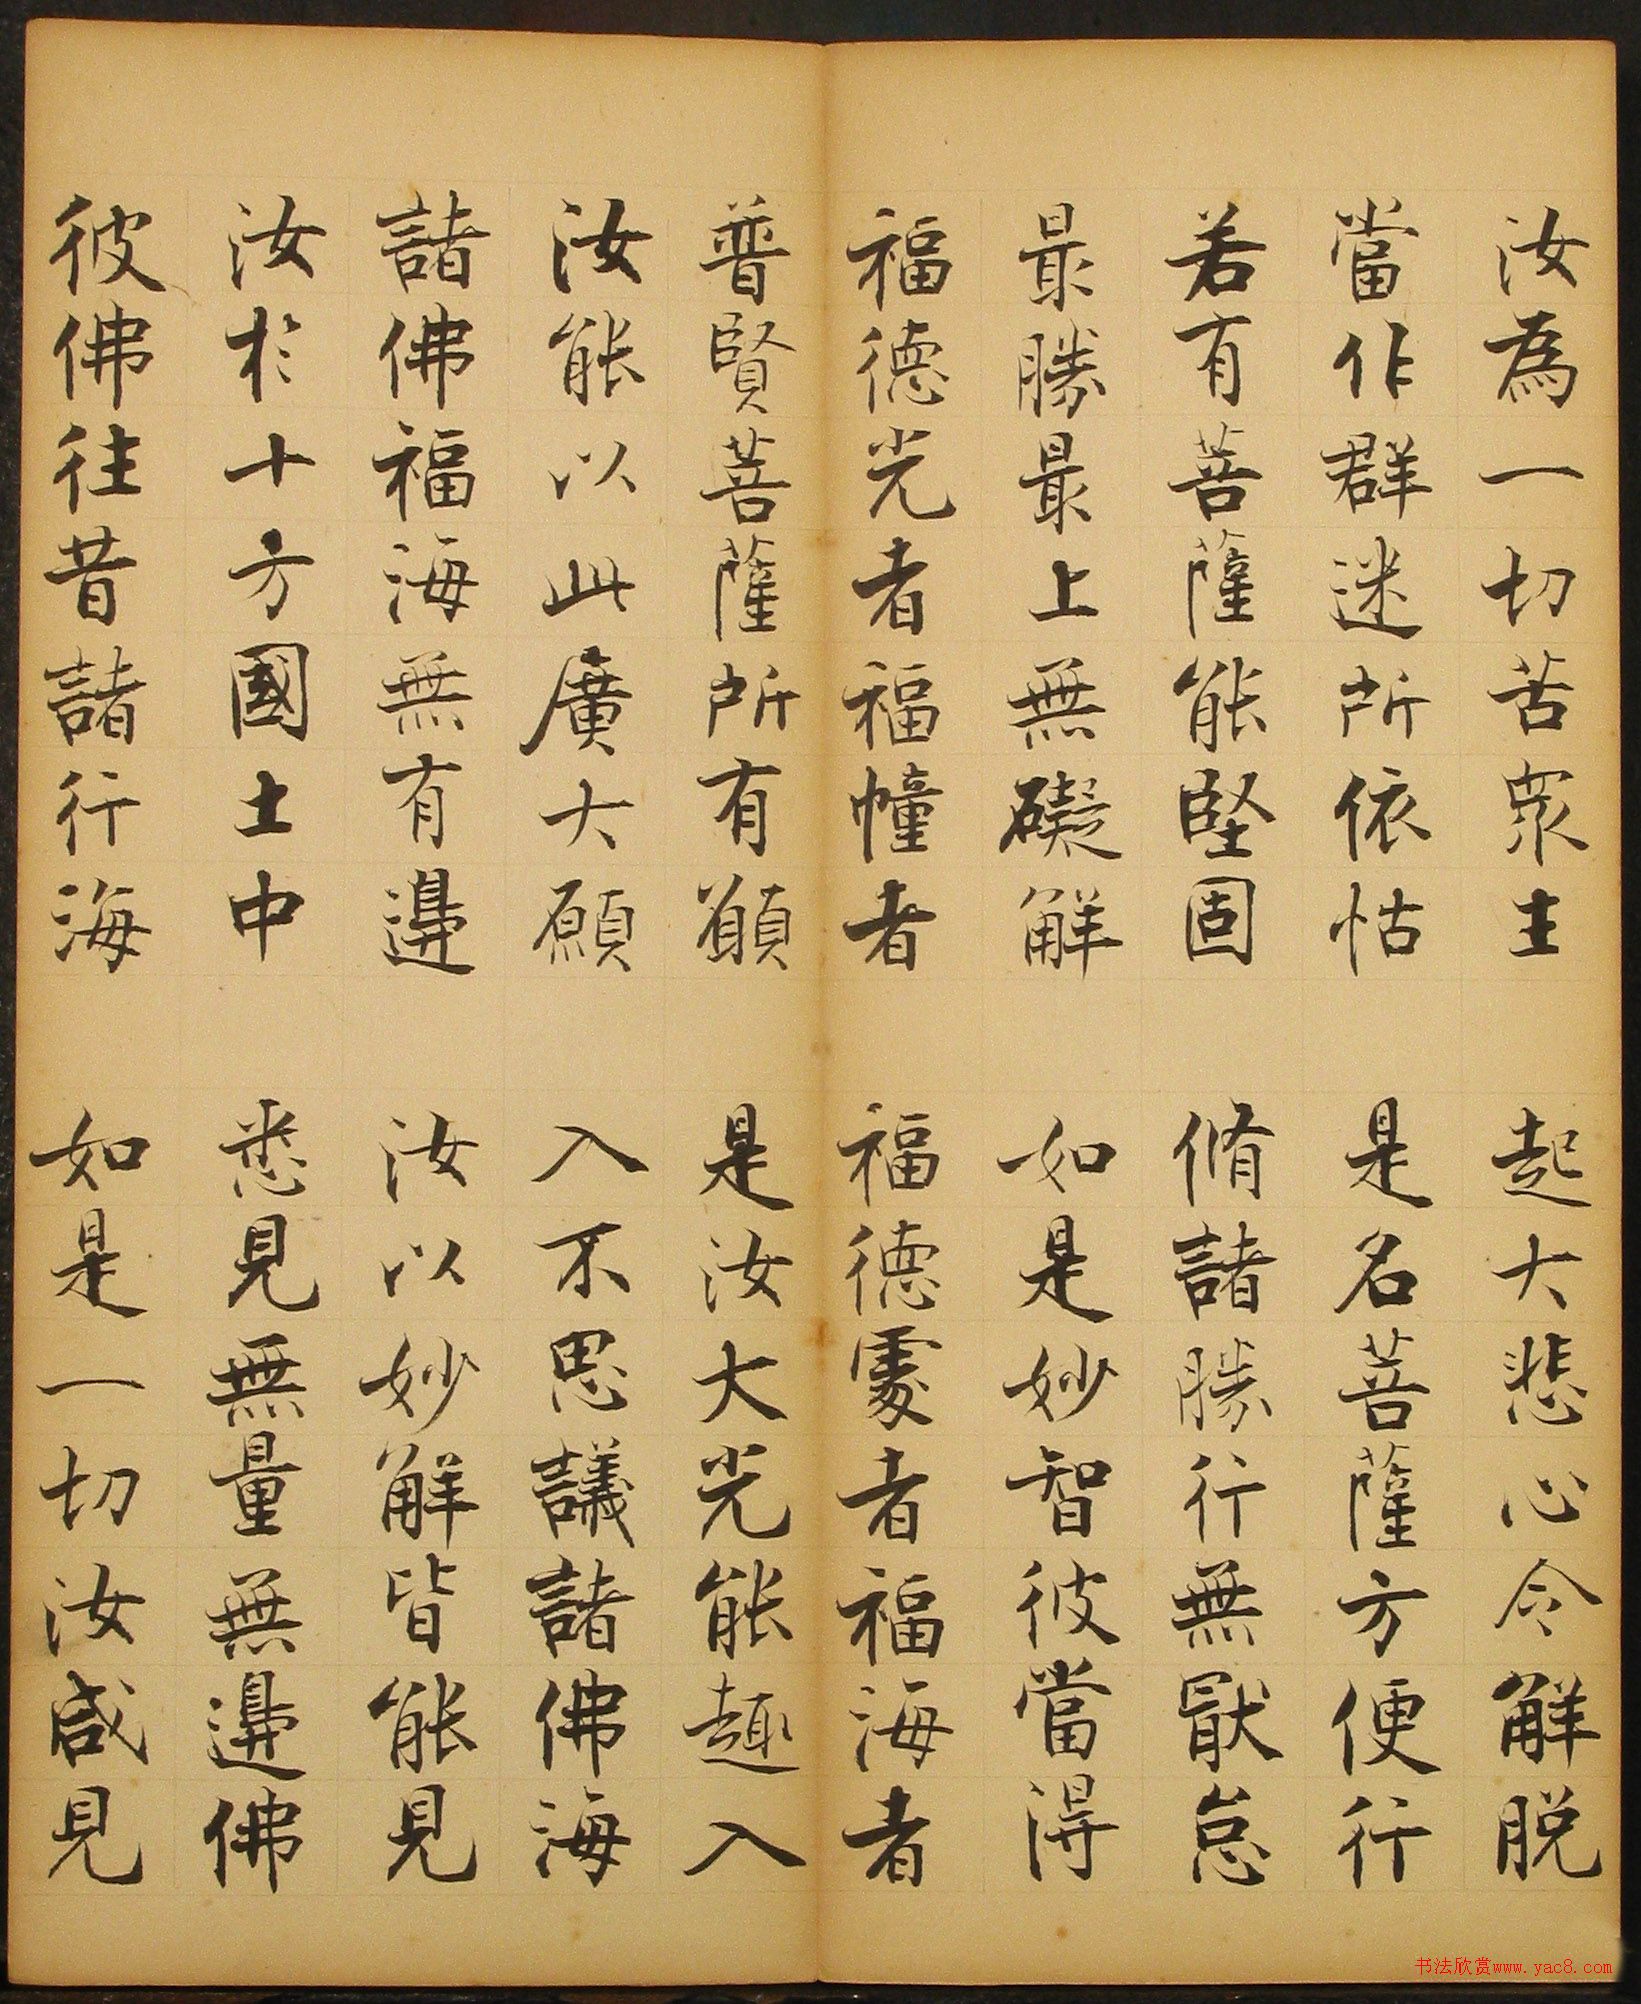 汝為一切苦眾主 起大悲心令解脫
當作群迷所依怙 是名菩薩方便行
若有菩薩能堅固 脩諸勝行無厭怠
最勝最上無礙解 如是妙智彼當得
福德光者福幢者 福德處者福海者
普賢菩薩所有願 是汝大光能趣入
汝能以此廣大願 入不思議諸佛海
諸佛福海無有邊 汝以妙解皆能見
汝於十方國土中 悉見無量無邊佛
彼佛往昔諸行海 如是一切汝咸見
书法欣赏www.yac8.com